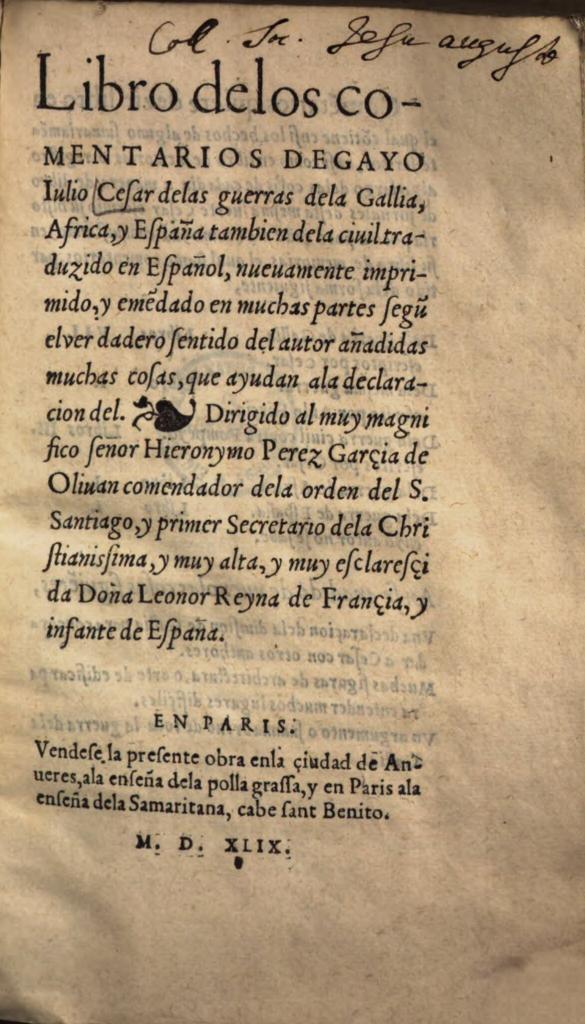 Coll. Soc. Jesu august
Libro delos co-
MENTARIOS DEGAYO
Iulio Ceſar delas guerras dela Gallia,
Africa,y Eſpãña tambien dela ciuil tra-
duzido en Eſpañol, nueuamente impri-
mido,y emẽdado en muchas partes ſegũ
elver dadero ſentido del autor añadidas
muchas coſas,que ayudan ala declara-
cion del. ❧ Dirigido al muy magni
fico ſeñor Hieronymo Perez Garçia de
Oliuan comendador dela orden del S.
Santiago,y primer Secretario dela Chri
ſtianiſſima,y muy alta,y muy eſclareſçi
da Doña Leonor Reyna de Françia,y
infante de Eſpaña.
EN PARIS.
Vendeſe la preſente obra enla çiudad de An-
ueres,ala enſeña dela polla graſſa,y en Paris ala
enſeña dela Samaritana, cabe ſant Benito.
M. D. XLIX.